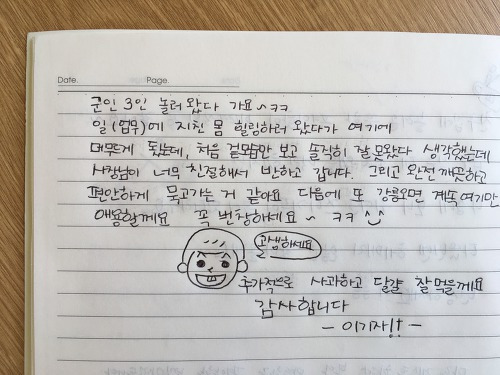 Date. Page.
군인 3인 놀러 왔다 가요~ㅋㅋ
일(업무)에 지친 몸 힐링하러 왔다가 여기에
머무르게 됬는데, 처음 겉모습만 보고 솔직히 잘못왔다 생각했는데
사장님이 너무 친절해서 반하고 갑니다. 그리고 완전 깨끗하고
편안하게 묵고가는 거 같아요 다음에 또 강릉오면 계속 여기만
애용할께요 꼭 번창하세요~ ㅋㅋ
고생하세요
추가적으로 사과하고 달걀 잘 먹을께요
감사합니다
- 이기자!! -